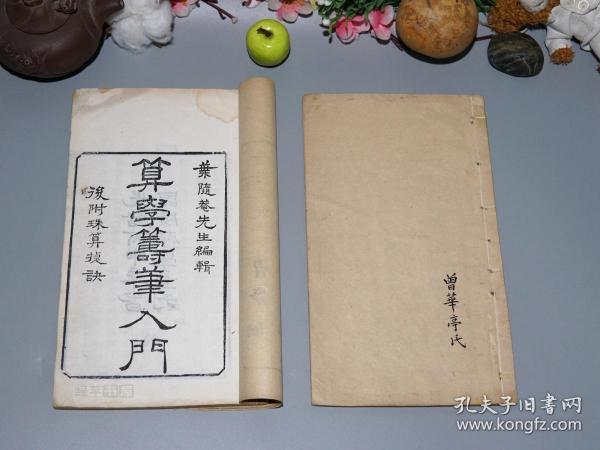 葉隨菴先生編輯
算學籌筆入門
後附珠算捷訣
曾華亭氏
孔夫子旧书网
www.kongfz.com